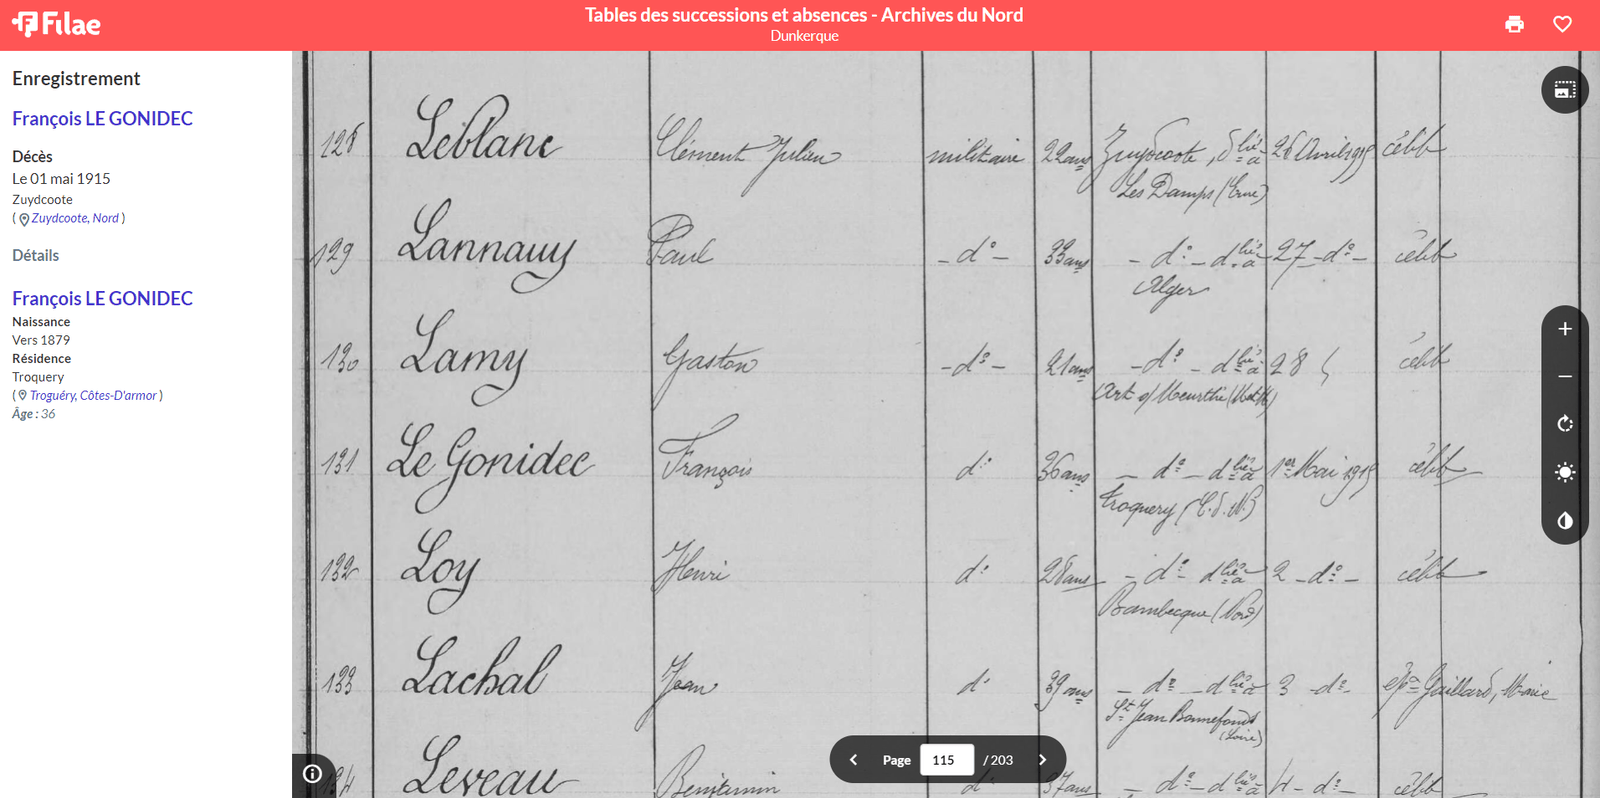 Filae
Tables des successions et absences - Archives du Nord
Dunkerque
Enregistrement
François LE GONIDEC
Décès
Le 01 mai 1915
Zuydcoote
( Zuydcoote, Nord )
Détails
François LE GONIDEC
Naissance
Vers 1879
Résidence
Troquery
( Troguéry, Côtes-D'armor )
Âge : 36
128 Leblanc Clément Julien militaire 22 ans Zuydcoote, dlié à 26 Avril 1915 célib
Les Damps (Eure)
129 Lannauy Paul - do - 33 ans - do - dlié à 27 - do - célib
Alger
130 Lamy Gaston - do - 21 ans - do - dlié à 28 célib
Art s/ Meurthe (M et M)
131 Le Gonidec François do 36 ans - do - dlié à 1er Mai 1915 célib
Troquery (C. d. N)
132 Loy Henri do 28 ans - do - dlié à 2 - do - célib
Bambecque (Nord)
133 Lachal Jean do 39 ans - do - dlié à 3 - do - épx Gaillard, Marie
St Jean Bonnefonds
(Loire)
134 Leveau Benjamin do 37 ans - do - dlié à 4 - do - célib
Page 115 / 203